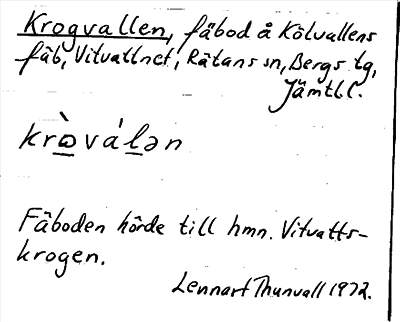 Krogvallen, fäbod å Kölvallens
fäb, Vitvattnet, Rätans sn, Bergs tg,
Jämtl l.
krò̠váḻən
Fäboden hörde till hmn. Vitvatts-
krogen.
Lennart Thunvall 1972.